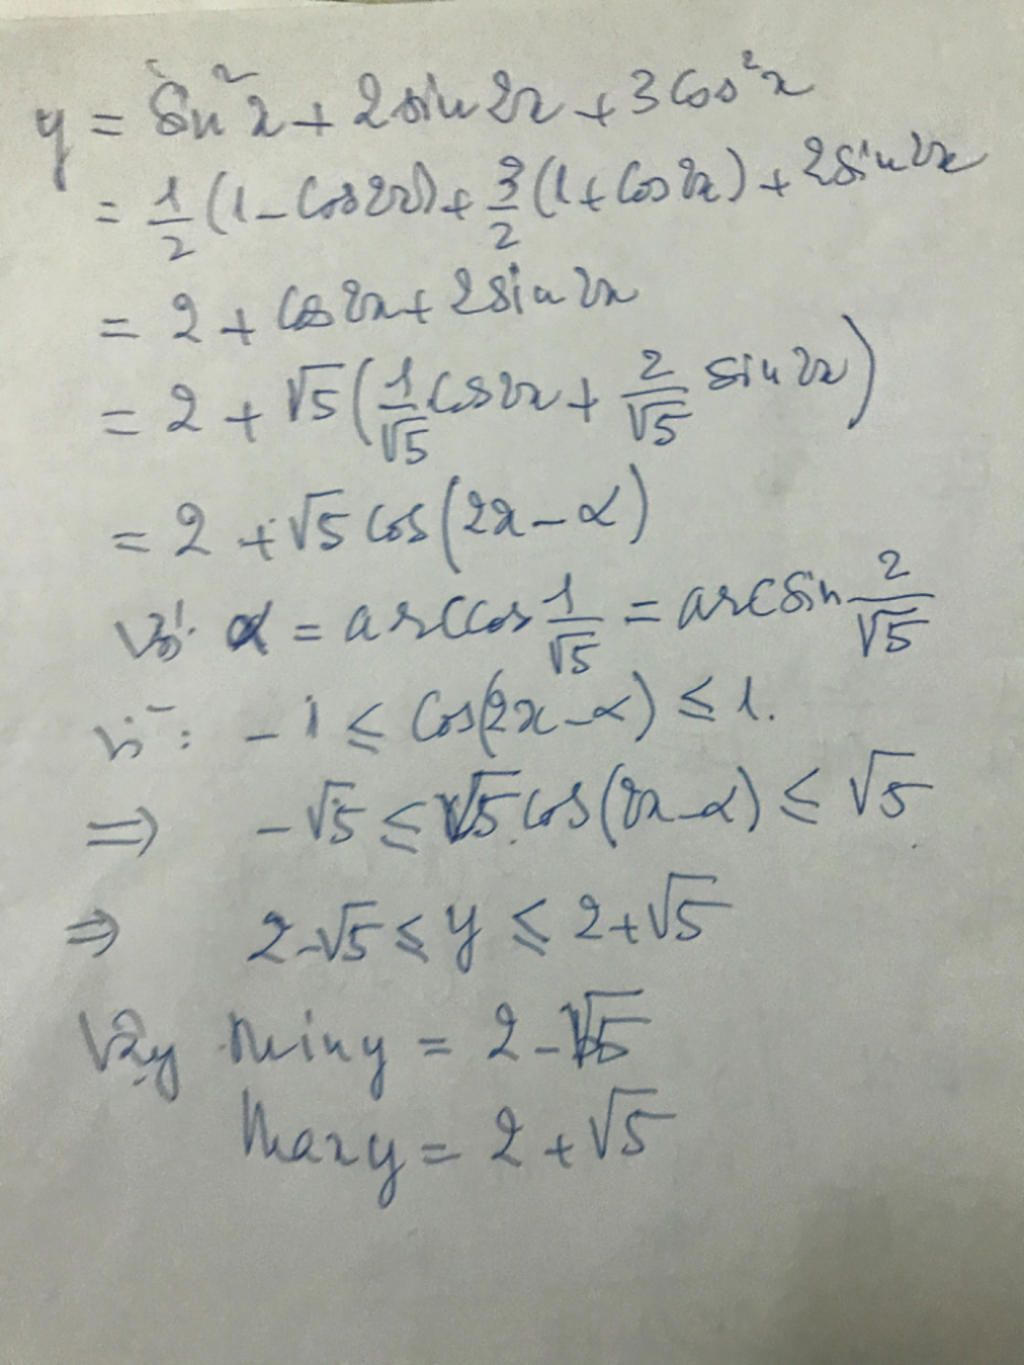 y = sin²x + 2sin2x + 3cos²x
= 1/2 (1 - cos2x) + 3/2 (1 + cos2x) + 2sin2x
= 2 + cos2x + 2sin2x
= 2 + √5 (1/√5 cos2x + 2/√5 sin2x)
= 2 + √5 cos(2x - α)
Với α = arccos 1/√5 = arcsin 2/√5
Vì : -1 ≤ cos(2x - α) ≤ 1.
⇒ -√5 ≤ √5 cos(2x - α) ≤ √5
⇒ 2 - √5 ≤ y ≤ 2 + √5
Vậy miny = 2 - √5
maxy = 2 + √5